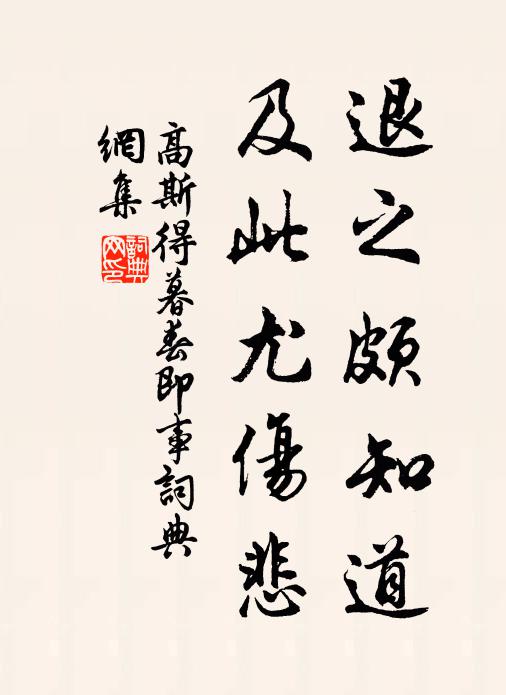 退之頗知道
及此尤傷悲
高斯得暮春即事詞典
網集
詞典
网印